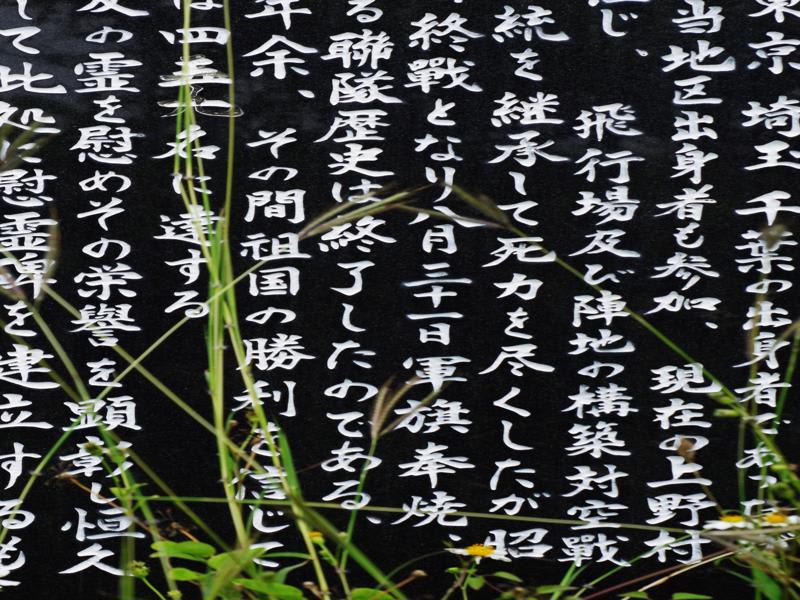 東京埼玉千葉の出身者であ
当地区出身者も参加、現在の上野村
じ、飛行場及び陣地の構築対空戰
統を継承して死力を尽くしたが昭
終戰となり八月三十一日軍旗奉焼、
る聯隊歴史は終了したのである、
年余、その間祖国の勝利を信じて
は四名に達する
の霊を慰めその栄譽を顕彰し恒久
して此処に慰霊碑を建立するも